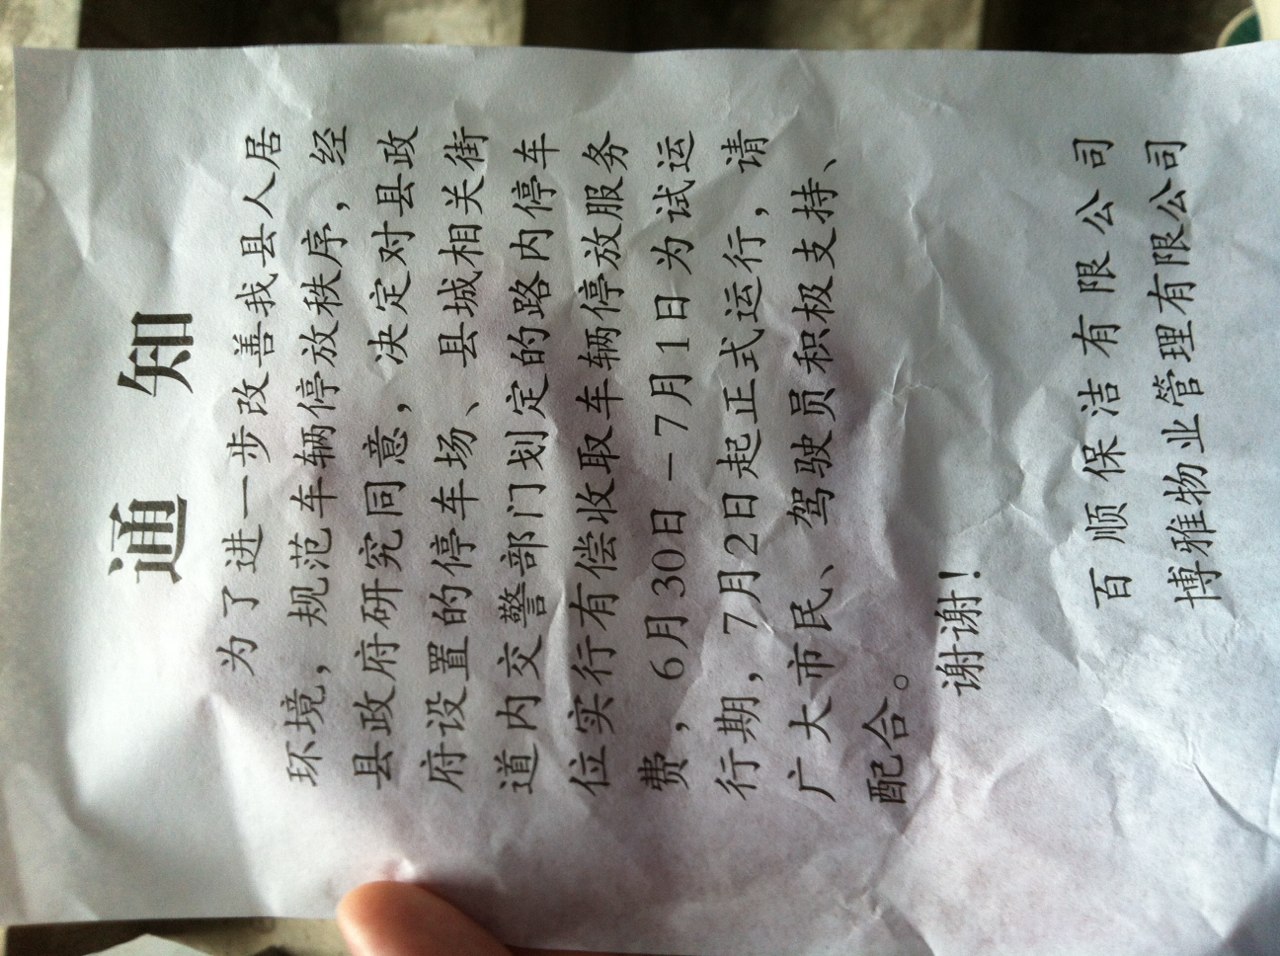 通知
为了进一步改善我县人居
环境，规范车辆停放秩序，经
县政府研究同意，决定对县政
府设置的停车场、县城相关街
道内交警部门划定的路内停车
位实行有偿收取车辆停放服务
费，6月30日－7月1日为试运
行期，7月2日起正式运行，请
广大市民、驾驶员积极支持、
配合。
谢谢！
百顺保洁有限公司
博雅物业管理有限公司